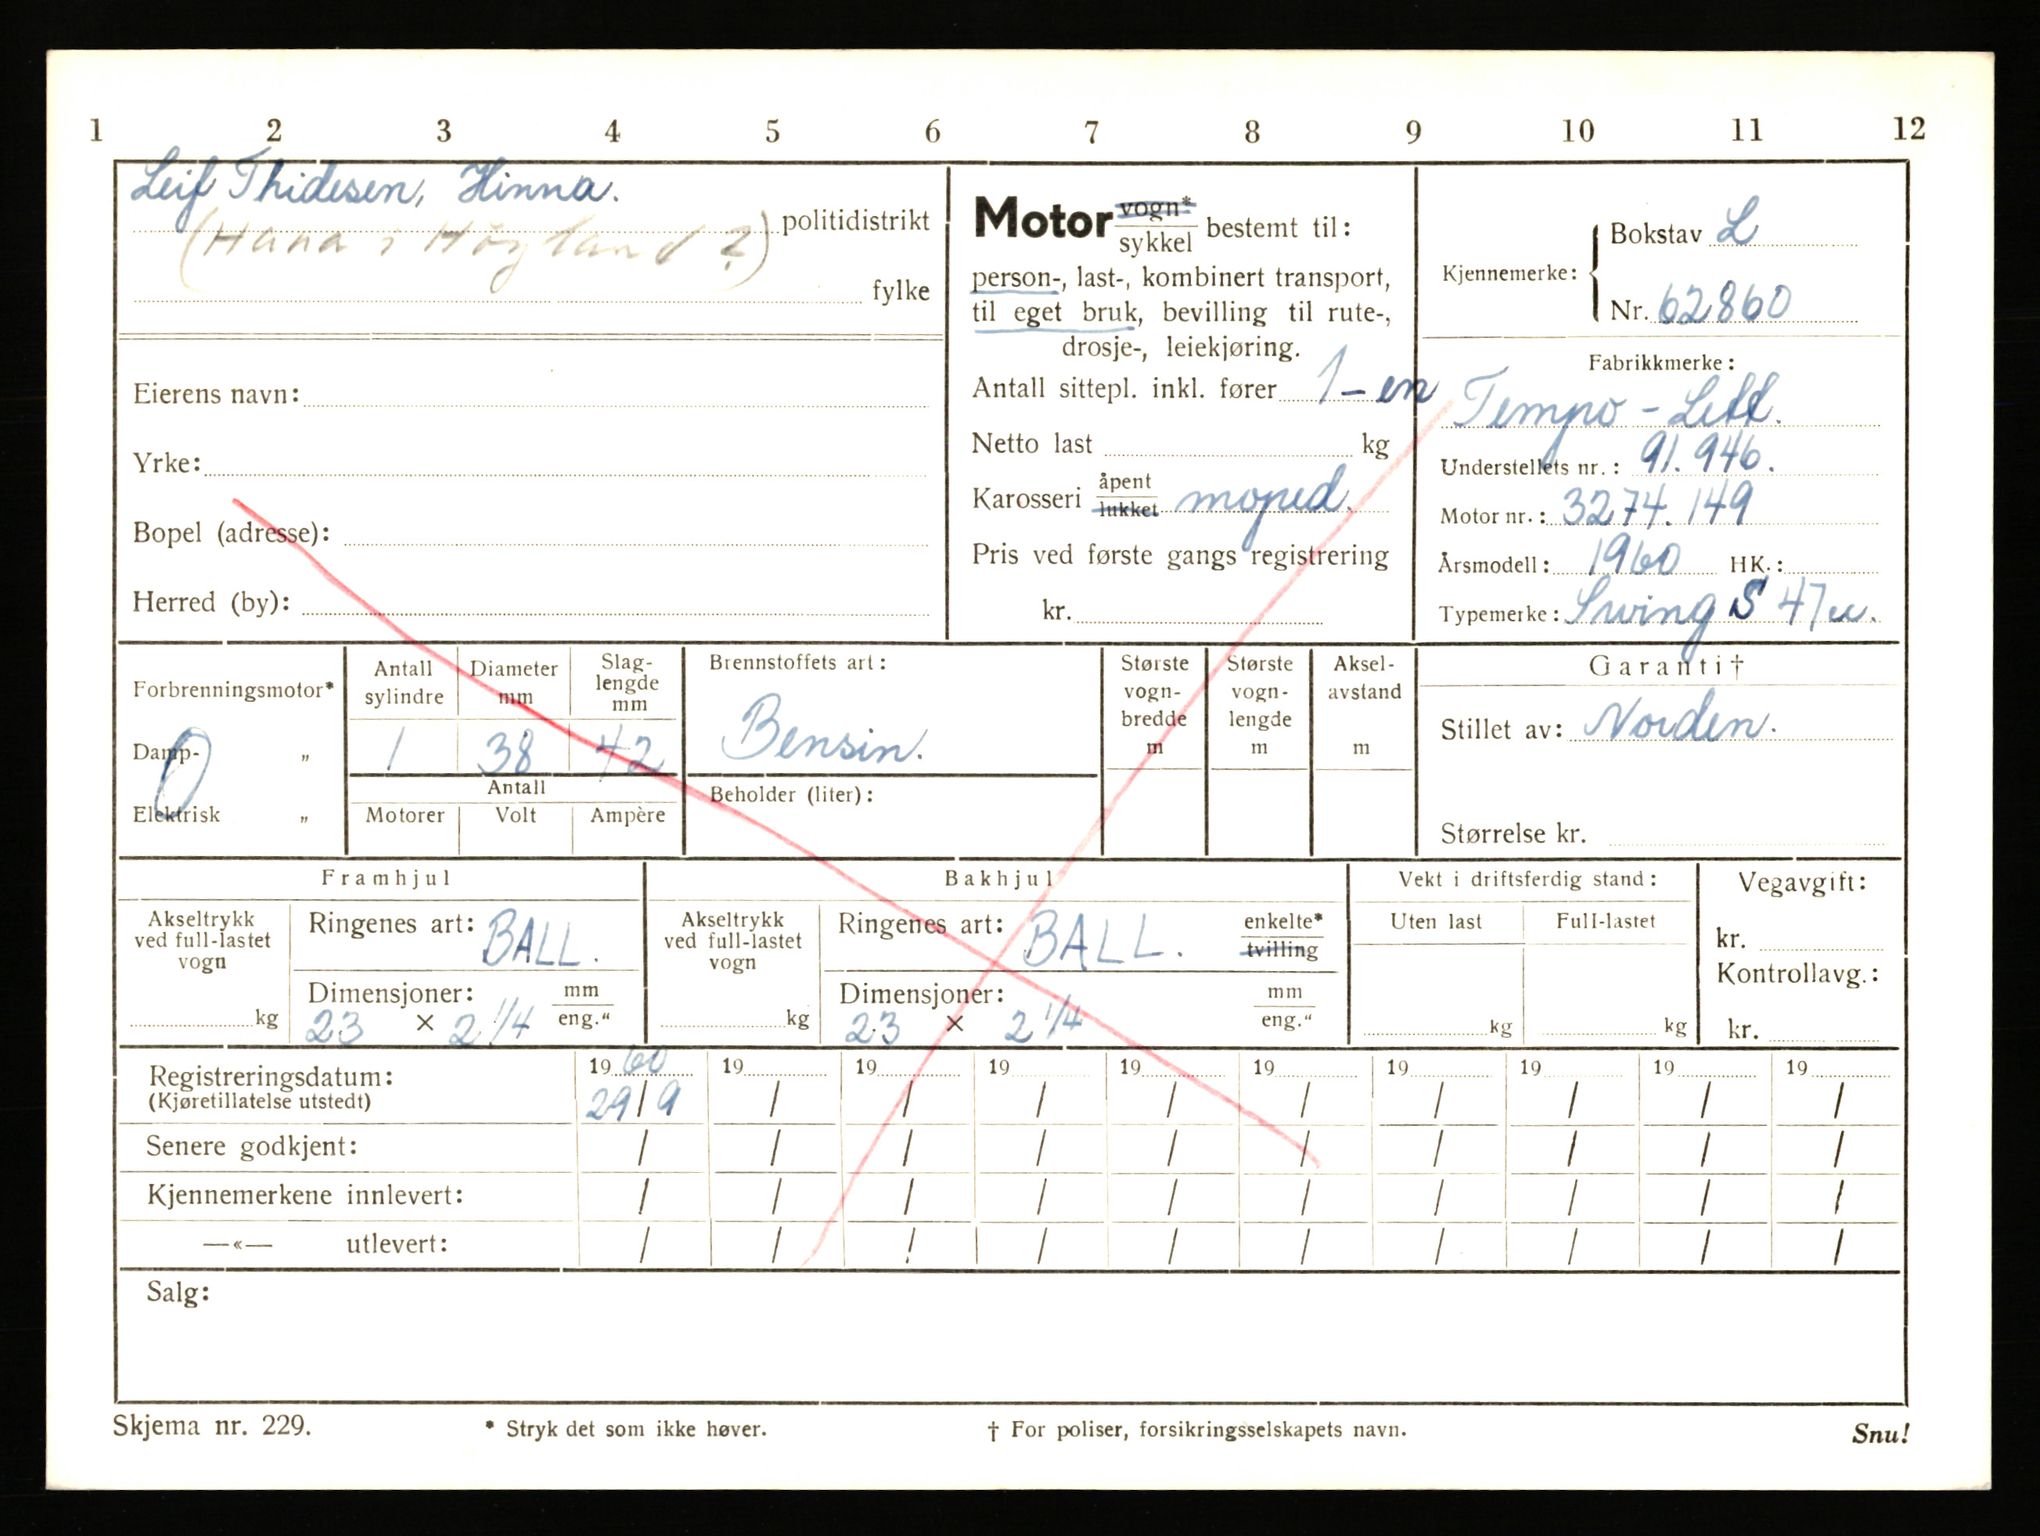 1 2 3 4 5 6 7 8 9 10 11 12
Leif Thidesen, Hinna.
(Hana i Høyland?) politidistrikt
fylke
Eierens navn:
Yrke:
Bopel (adresse):
Herred (by):
Motor vogn* sykkel bestemt til:
person-, last-, kombinert transport,
til eget bruk, bevilling til rute-,
drosje-, leiekjøring.
Antall sittepl. inkl. fører 1 - en
Netto last kg
Karosseri åpent lukket moped.
Pris ved første gangs registrering
kr.
Kjennemerke: Bokstav L
Nr. 62860
Fabrikkmerke:
Tempo - Lett.
Understellets nr.: 91.946.
Motor nr.: 3274.149
Årsmodell: 1960 HK.:
Typemerke: Swing S 47
Forbrenningsmotor*
Damp- „
Elektrisk „
Antall sylindre
Diameter mm
Slag-lengde mm
1 38 42
Antall
Motorer Volt Ampère
Brennstoffets art:
Bensin.
Beholder (liter):
Største vogn-bredde m
Største vogn-lengde m
Aksel-avstand m
Garanti†
Stillet av: Norden.
Størrelse kr.
Framhjul
Akseltrykk ved full-lastet vogn
kg
Ringenes art: BALL.
Dimensjoner: mm eng.“
23 × 2 1/4
Bakhjul
Akseltrykk ved full-lastet vogn
kg
Ringenes art: BALL. enkelte* tvilling
Dimensjoner: mm eng.“
23 × 2 1/4
Vekt i driftsferdig stand:
Uten last Full-lastet
kg kg
Vegavgift:
kr.
Kontrollavg.:
kr.
Registreringsdatum: 1960 19 19 19 19 19 19 19 19 19
(Kjøretillatelse utstedt) 29/9 / / / / / / / / /
Senere godkjent: / / / / / / / / / /
Kjennemerkene innlevert: / / / / / / / / / /
—«— utlevert: / / / / / / / / / /
Salg:
Skjema nr. 229. * Stryk det som ikke høver. † For poliser, forsikringsselskapets navn. Snu!